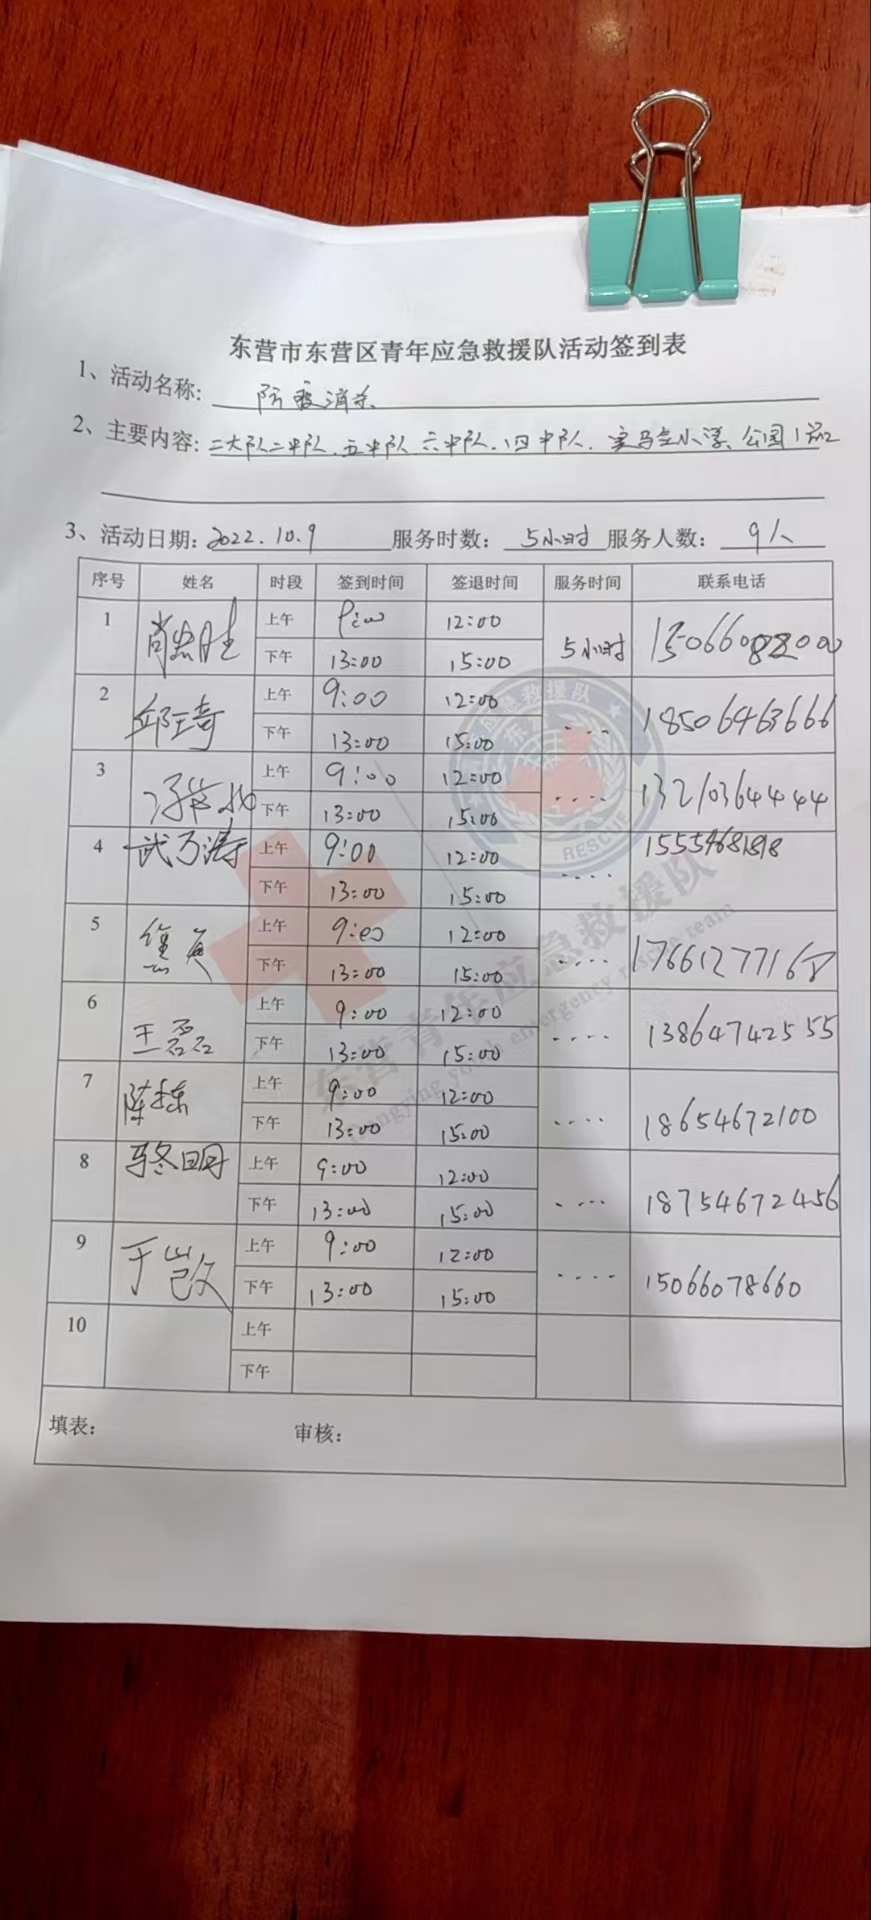 东营市东营区青年应急救援队活动签到表
1、活动名称: 防疫消杀
2、主要内容: 二大队二中队、五中队 六中队、四中队、 小 公园1
3、活动日期: 2022.10.9 服务时数: 5小时 服务人数: 9人
序号 姓名 时段 签到时间 签退时间 服务时间 联系电话
1 上午 12:00 5小时 15066082000
下午 13:00 15:00
2 邱琦 上午 9:00 12:00 .... 18506463666
下午 13:00 15:00
3 上午 9:00 12:00 .... 13210364444
下午 13:00 15:00
4 武乃涛 上午 9:00 12:00 .... 15554681818
下午 13:00 15:00
5 上午 9:00 12:00 .... 17661277168
下午 13:00 15:00
6 王磊 上午 9:00 12:00 .... 13864742555
下午 13:00 15:00
7 陈栋 上午 9:00 12:00 .... 18654672100
下午 13:00 15:00
8 上午 9:00 12:00 .... 18754672456
下午 13:00 15:00
9 于 上午 9:00 12:00 .... 15066078660
下午 13:00 15:00
10 上午
下午
填表: 审核:
应急救援队
RESCUE
东营青年应急救援队
Dongying youth emergency rescue team